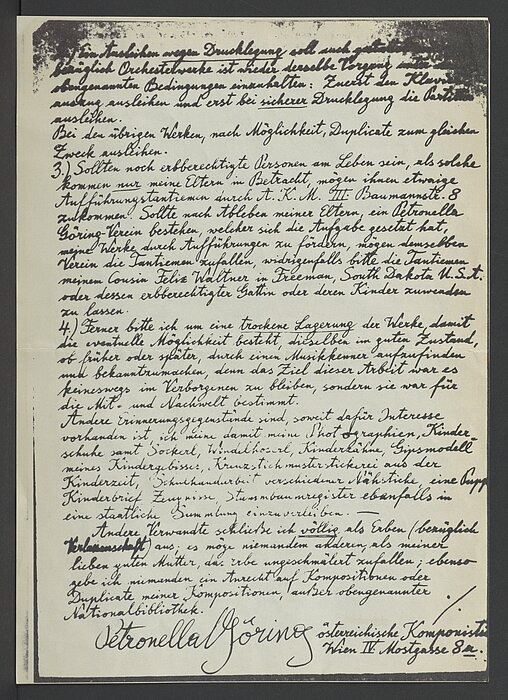 Ein Ausleihen wegen Drucklegung soll auch
bezüglich Orchesterwerke ist wieder derselbe Vorgang unter
obengenannten Bedingungen einzuhalten: Zuerst den Klavier-
auszug ausleihen und erst bei sicherer Drucklegung die Partitur
ausleihen.
Bei den übrigen Werken, nach Möglichkeit, Duplicate zum gleichen
Zweck ausleihen.
3.) Sollten noch erbberechtigte Personen am Leben sein, als solche
kommen nur meine Eltern in Betracht, mögen ihnen etwaige
Aufführungstantiemen durch A. K. M. III. Baumannstr. 8
zukommen. Sollte nach Ableben meiner Eltern, ein Petronella
Göring-Verein bestehen, welcher sich die Aufgabe gesetzt hat,
meine Werke durch Aufführungen zu fördern, mögen demselben
Verein die Tantiemen zufallen, widrigenfalls bitte die Tantiemen
meinen Cousin Felix Waltner in Freeman, South Dakota U.S.A.
oder dessen erbberechtigter Gattin oder deren Kinder zuwenden
zu lassen.
4.) Ferner bitte ich um eine trockene Lagerung der Werke, damit
die eventuelle Möglichkeit besteht, dieselben in guten Zustand,
ob früher oder später, durch einen Musikkenner aufzufinden
und bekanntzumachen, denn das Ziel dieser Arbeit war es
keineswegs im Verborgenen zu bleiben, sondern sie war für
die Mit- und Nachwelt bestimmt.
Andere Erinnerungsgegenstände sind, soweit dafür Interesse
vorhanden ist, ich meine damit meine Photographien, Kinder-
schuhe samt Sockerl, Windelhoserl, Kinderzähne, Gipsmodell
meines Kindergebisses, Kreuzstichmusterstickerei aus der
Kinderzeit, Schulhandarbeit verschiedener Nähstiche, eine Puppe
Kinderbrief Zeugnisse, Stammbaumregister ebenfalls in
eine staatliche Sammlung einzuverleiben. —
Andere Verwandte schließe ich völlig als Erben (bezüglich
Verlassenschaft) aus; es möge niemandem anderen, als meiner
lieben guten Mutter, das Erbe ungeschmälert zufallen; ebenso
gebe ich niemanden ein Anrecht auf Kompositionen oder
Duplicate meiner Kompositionen, außer obengenannter
Nationalbibliothek. ./.
Petronella Göring österreichische Komponistin
Wien IV. Mostgasse 8a.